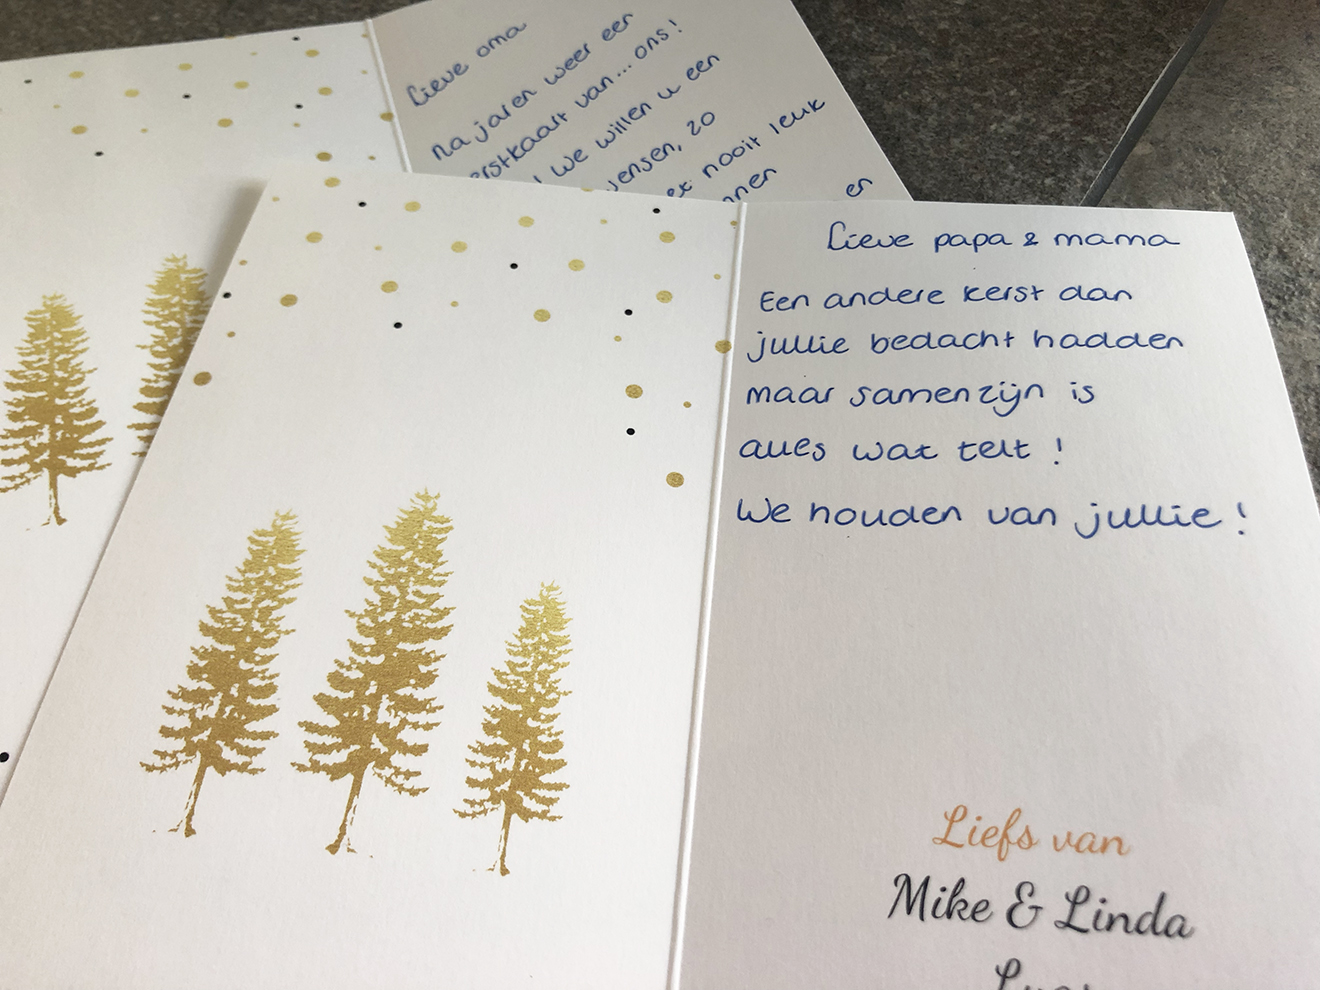 Lieve oma
na jaren weer een
van... ons!
we willen u een
20
nooit leuk
er
Lieve papa & mama
Een andere kerst dan
jullie bedacht hadden
maar samenzijn is
alles wat telt !
We houden van jullie !
Liefs van
Mike & Linda